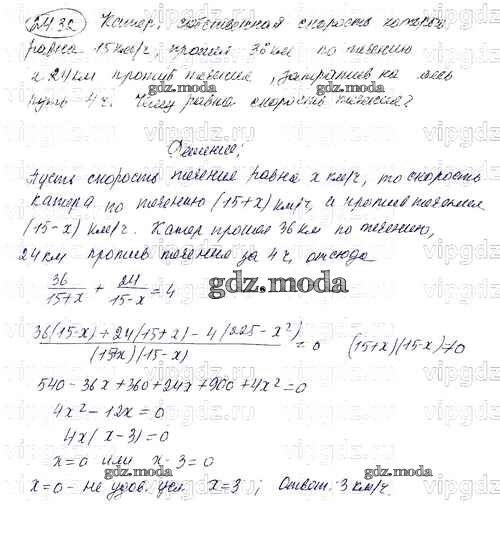 24.32 Катер, собственная скорость которого
равна 15 км/ч, прошел 36 км по течению
и 24 км против течения, затратив на весь
путь 4 ч. Чему равна скорость течения?
Решение:
Пусть скорость течения равна x км/ч, то скорость
катера по течению (15+x) км/ч, а против течения
(15-x) км/ч. Катер прошел 36 км по течению,
24 км против течения за 4 ч, отсюда
36/(15+x) + 24/(15-x) = 4
gdz.moda
(36(15-x)+24(15+x)-4(225-x²))/((15+x)(15-x)) = 0 (15+x)(15-x)≠0
540-36x+360+24x+900+4x²=0
4x²-12x=0
4x(x-3)=0
x=0 или x-3=0
gdz.moda
x=0 - не удов. усл. x=3; Ответ: 3 км/ч.